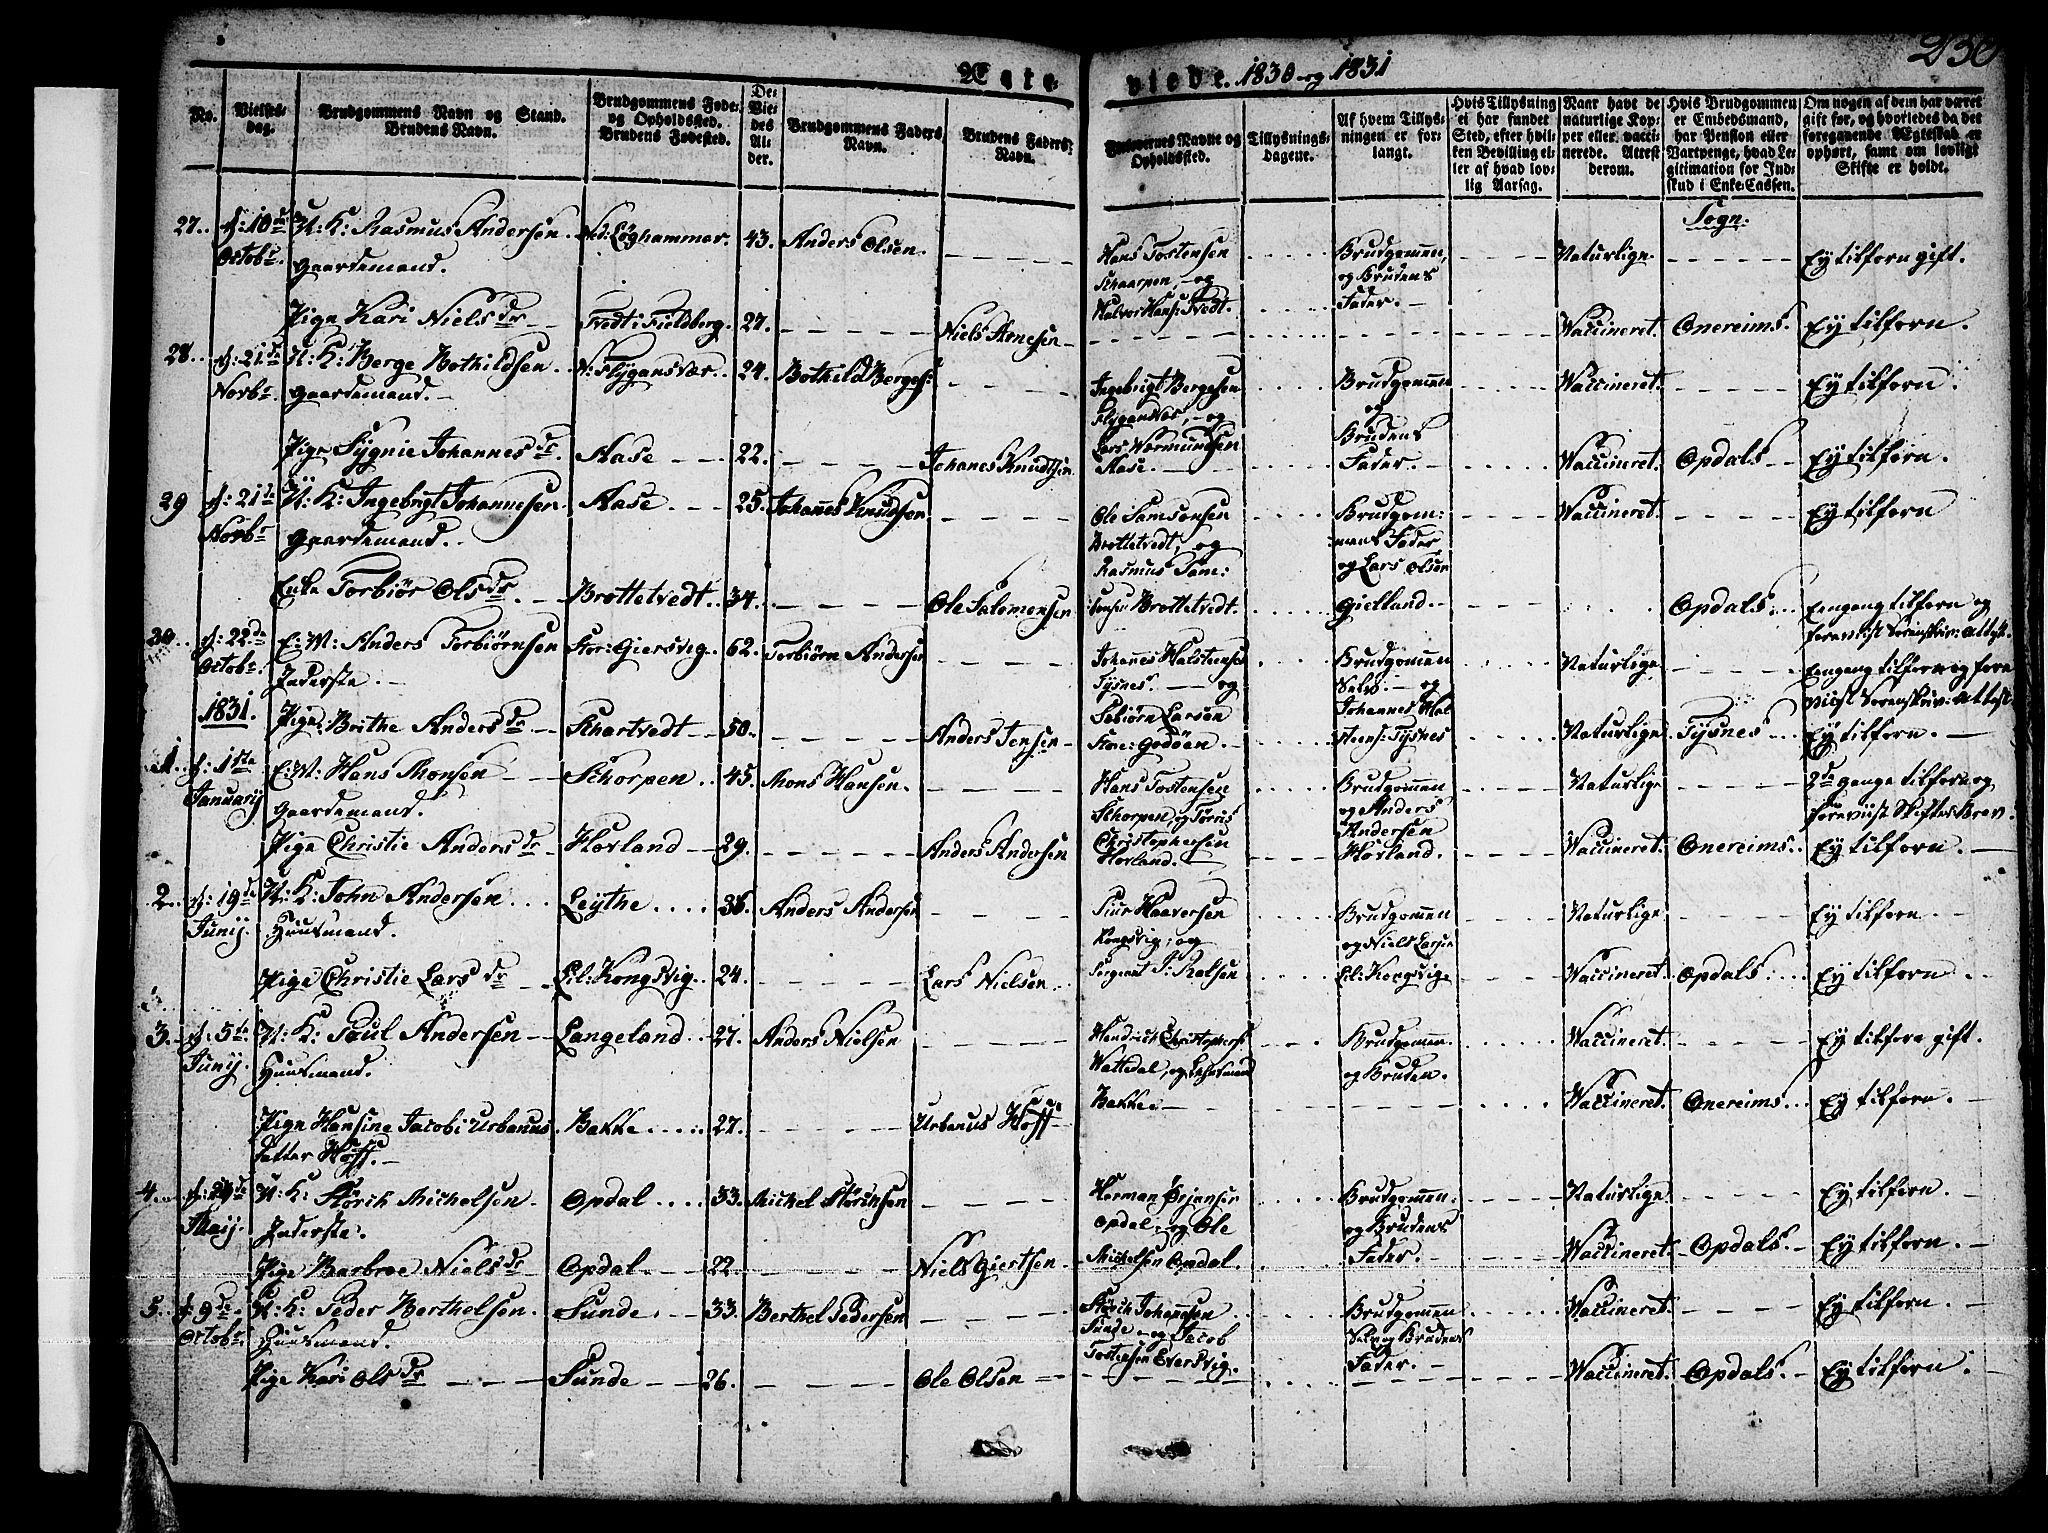 230
Ægte viede. 1830 og 1831
No.
Vielses-dag.
Brudgommens Navn og Stand.
Brudens Navn.
Brudgommens Føde- og Opholdssted.
Brudens Fødested.
De Viedes Alder.
Brudgommens Faders Navn.
Brudens Faders Navn.
Forlovernes Navne og Opholdssted.
Tillysnings-Dagene.
Af hvem Tillysningen er forlangt.
Hvis Tillysning ei har fundet Sted, efter hvilken Bevilling eller af hvad lovlig Aarsag.
Naar havt de naturlige Kopper eller vaccinerede. Attest derom.
Hvis Brudgommen er Embedsmand, har Pension eller Vartpenge, hvad Legitimation for Indskud i Enke-Cassen.
Om nogen af dem har været gift før, og hvorledes da det foregaaende Ægteskab er ophørt, samt om lovligt Skifte er holdt.
Sogn.
27. d: 10de Octobr. U: K: Rasmus Andersen Gaardemand. Ned: Løghammer. 43. Anders Olsen. Hans Tostensen Schaarpen, og Halvor Hans: Tvedt. Brudgommen, og Brudens Fader. Naturlige. Ey tilforn gift.
Pige Kari Nielsdr Tvedt i Fieldberg. 27. Niels Arnesen Vaccineret. Onereims. Ey tilforn.
28. d: 21de Novbr U: K: Berge Bothildsen Gaardemand. N: Flygansvær. 24. Bothild Berges: Ingebrigt Bergesen Flygansvær, og Lars Wermundsen Aase. Brudgommen og Brudens Fader. Vaccineret. Ey tilforn.
Pige Sygnie Johannesdr Aase 22. Johanes Knudsen Vaccineret. Opdals Ey tilforn.
29 d: 21de Novbr U: K: Ingebrigt Johannesen Gaardemand. Aase 25. Johannes Knudsen Ole Samsonsen Brottetvedt, og Rasmus Sam: sonsen Brottetvedt. Brudgom: mens Fader og Lars Olsen Gielland. Vaccineret. Ey tilforn
Enke Torbiør Olsdr Brottetvedt. 34. Ole Salomonsen Opdals. Eengang tilforn og foreviist Sorenskriv: Attest.
30. d: 22de Octobr E: M: Anders Torbiørnsen Inderste. Stor: Giersvig. 62. Torbiørn Andersen Johannes Halsteens: Tysnes. og Sebiørn Larsen Store: Godøen. Brudgommen Selv. og Johannes Hal steens: Tysnes Naturlige Eengang tilforn og fore viist Sorenskriv: Attest.
Pige: Brithe Andersdr Skartvedt 50. Anders Jensen Naturlige Tysnes Ey tilforn.
1831.
1. d: 1ste January E: M: Hans Monsen Gaardemand. Schorpen. 45. Mons Hansen. Hans Tostensen Schorpen, og Tørris Christophersen Horland. Brudgommen og Anders Andersen Horland. Naturlige 2de gange tilforn og foreviist Skiftes Brev.
Pige Christie Andersdr Horland 29. Anders Andersen Vaccineret. Onereims. Ey tilforn.
2. d: 19de Junij. U: K: John Andersen Huusmand. Leythe 36. Anders Andersen Siur Haaversen Kongsvig, og Sergeant J: Ralsen Brudgommen og Niels Larsen Lil: Kongsvig Naturlige Ey tilforn.
Pige Christie Larsdr Lil: Kongsvig. 24. Lars Nielsen. Vaccineret. Opdals. Ey tilforn.
3. d: 5te Junij. U: K: Paul Andersen Huusmand. Langeland 27. Anders Nielsen Hendrich Christophers: Wattedal, og Bakke. Brudgommen. og Bruden. Vaccineret. Ey tilforn gift.
Pige Hansine Jacobi Urbanus datter Hoff. Bakke 27. Urbanus Hoff Vaccineret. Onereims. Ey tilforn.
4. d: 24de Maij. U: K: Størch Michelsen Inderste. Opdal 33. Michel Størchsen Herman Ørjansen Opdal, og Ole Michelsen Opdal. Brudgommen. og Brudens Fader. Naturlige. Ey tilforn.
Pige Barbroe Nielsdr Opdal. 22. Niels Giertsen Vaccineret. Opdals. Ey tilforn.
5. d: 9de Octobr. U: K: Peder Berthelsen Huusmand. Sunde 33. Berthel Pedersen Størch Johannesen Sunde og Jacob Tostensen Eversvig. Brudgommen Selv og Brudens Fader. Vaccineret. Ey tilforn.
Pige Kari Olsdr Sunde 26. Ole Olsen Vaccineret. Opdals. Ey tilforn.